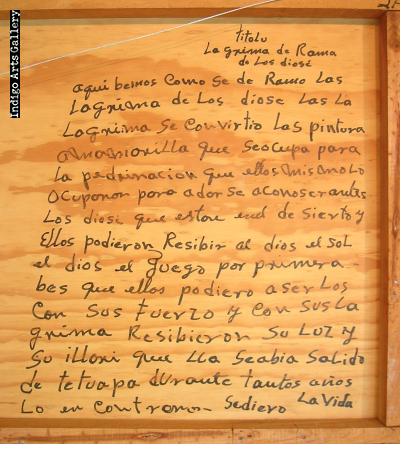 Indigo Arts Gallery
titolu
La grima de Rama
de Los diose
aqui bemos Como se de Ramo Las
Lagrima de Los diose Las La
Lagrima Se Convirtio Las pintura
que Seocupa para
La que ellos mismo Lo
Ocuponon para ador Se aconoser antes
Los diose que estan end de Sierto y
Ellos podieron Resibir al dios el sol
el dios el fuego por primera
bes que ellos podiero aserlos
Con Sus fuerzo y Con Sus La
grima Resibieron Su Luz y
Su que lla Seabia Salido
de tetuapa durante tantos años
Lo en Contramon Sediero La Vida